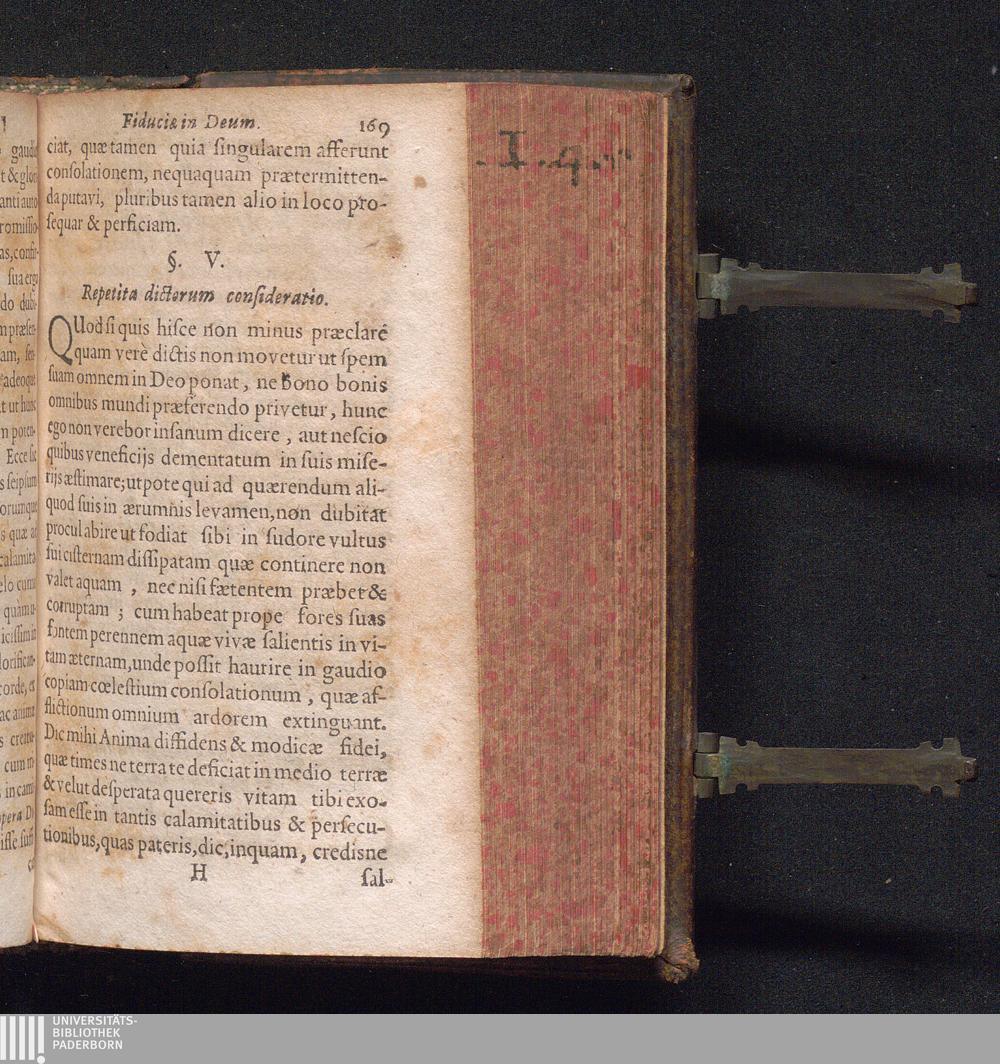 Fiduciæ in Deum. 169
ciat, quæ tamen quia ſingularem afferunt
conſolationem, nequaquam prætermitten-
da putavi, pluribus tamen alio in loco pro-
ſequar & perficiam.
§. V.
Repetita dictorum conſideratio.
QUod ſi quis hiſce non minus præclarè
quam verè dictis non movetur ut ſpem
ſuam omnem in Deo ponat, ne bono bonis
omnibus mundi præferendo privetur, hunc
ego non verebor inſanum dicere, aut neſcio
quibus veneficijs dementatum in ſuis miſe-
rijs æſtimare; utpote qui ad quærendum ali-
quod ſuis in ærumnis levamen, non dubitat
procul abire ut fodiat ſibi in ſudore vultus
ſui ciſternam diſſipatam quæ continere non
valet aquam, nec niſi fætentem præbet &
corruptam; cum habeat prope fores ſuas
fontem perennem aquæ vivæ ſalientis in vi-
tam æternam, unde poſſit haurire in gaudio
copiam cœleſtium conſolationum, quæ af-
flictionum omnium ardorem extinguant.
Dic mihi Anima diffidens & modicæ fidei,
quæ times ne terra te deficiat in medio terræ
& velut deſperata quereris vitam tibi exo-
ſam eſſe in tantis calamitatibus & perſecu-
tionibus, quas pateris, dic, inquam, credisne
H ſal-
gaudio
t & glori
romiſſio
ſua ergo
adeoque
t ut hunc
n poten-
Ecce ſic
s ſeipſum
orumque
calamita
elo cum
quàm u-
ac anima
s creatu-
cum in
in cam
opera D
iſſe ſuff
UNIVERSITÄTS-
BIBLIOTHEK
PADERBORN